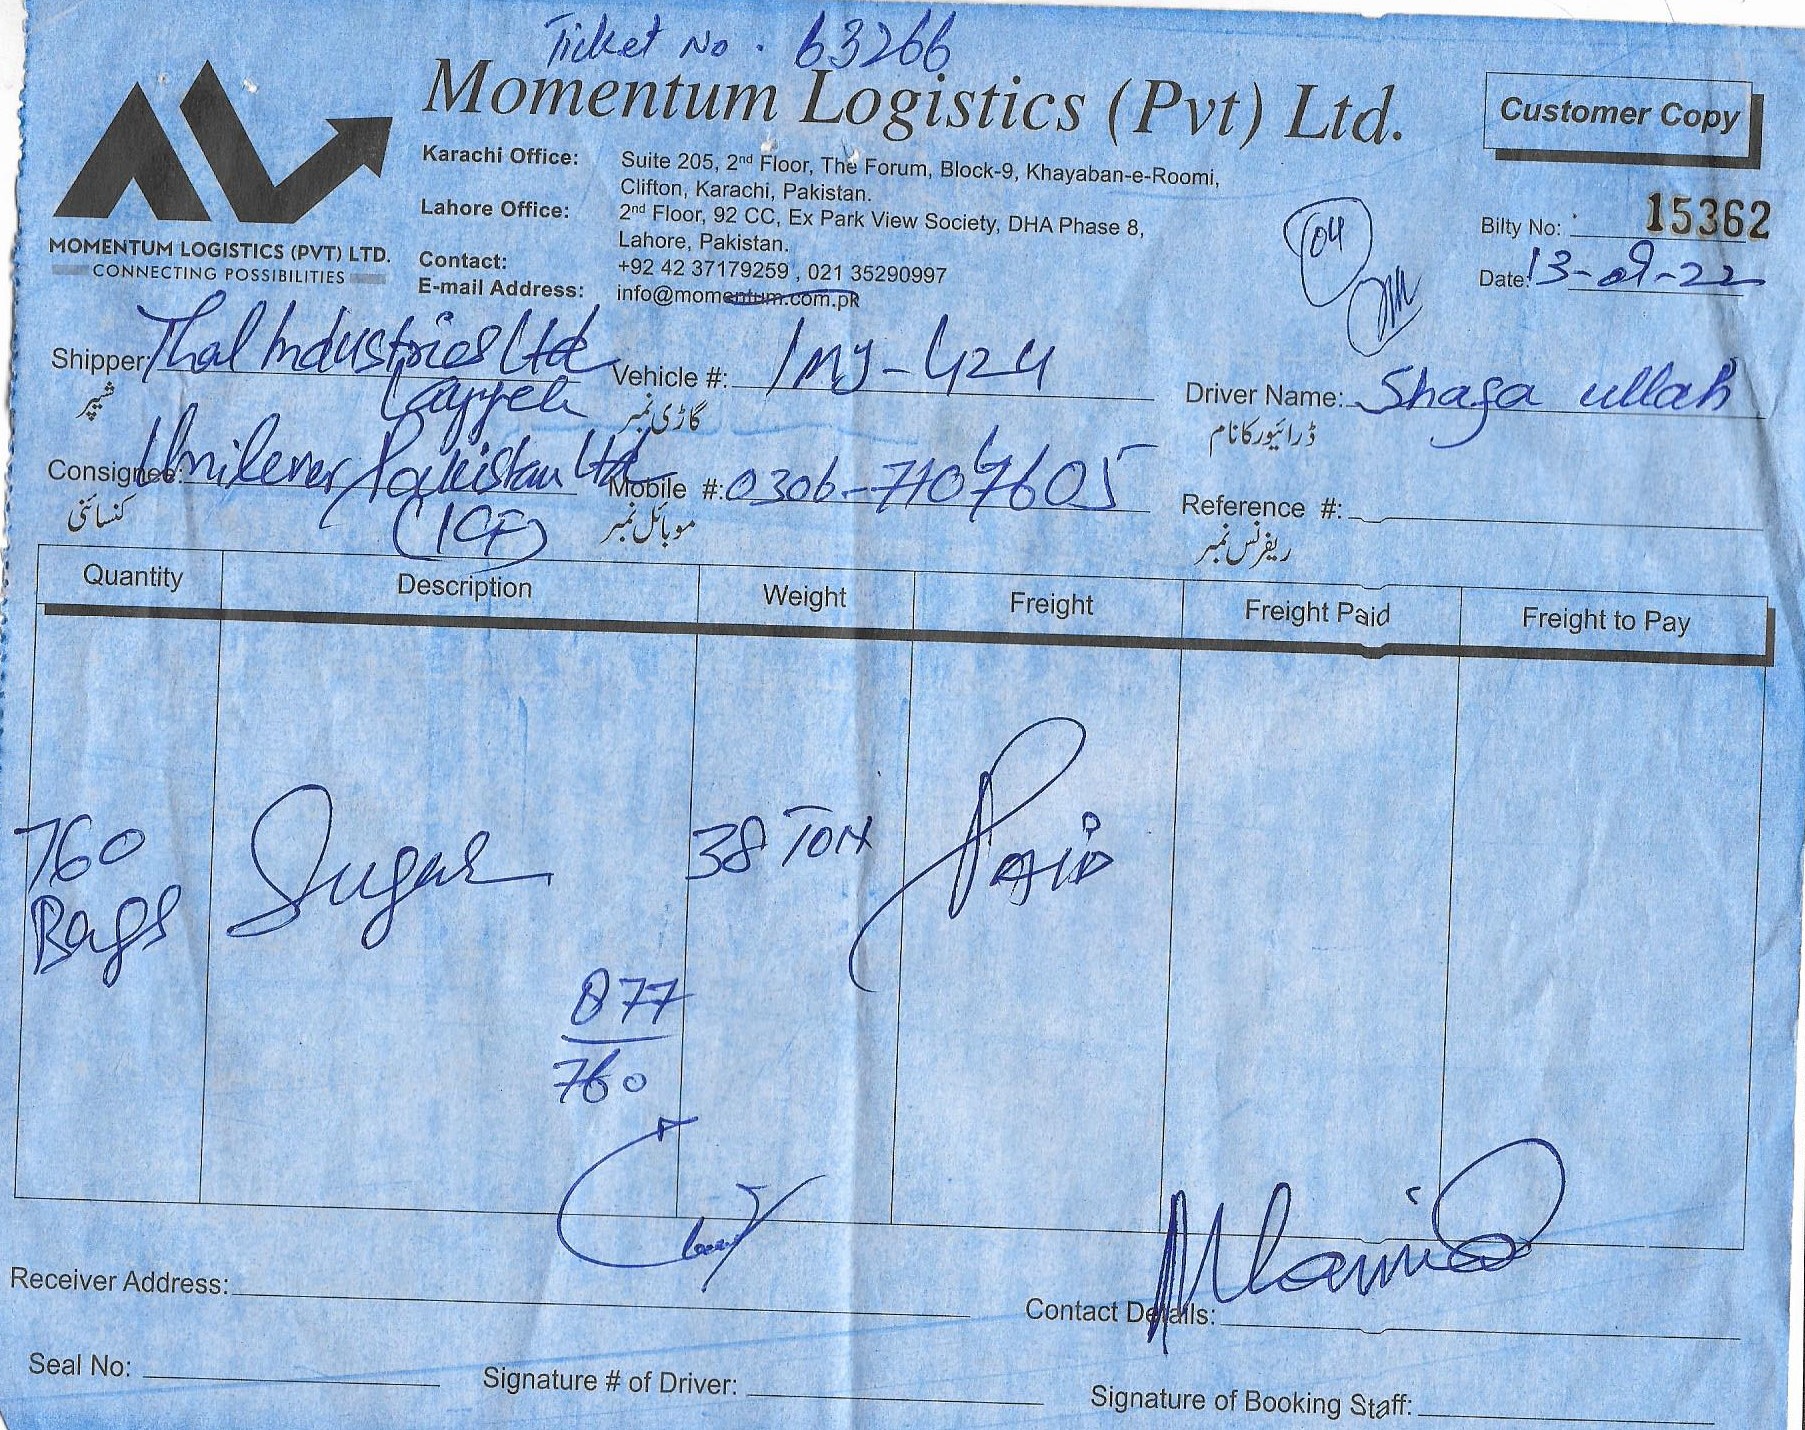 Ticket No. 63266
Momentum Logistics (Pvt) Ltd.
Customer Copy
MOMENTUM LOGISTICS (PVT) LTD.
CONNECTING POSSIBILITIES
Karachi Office: Suite 205, 2nd Floor, The Forum, Block-9, Khayaban-e-Roomi,
Clifton, Karachi, Pakistan.
Lahore Office: 2nd Floor, 92 CC, Ex Park View Society, DHA Phase 8,
Lahore, Pakistan.
Contact: +92 42 37179259 , 021 35290997
E-mail Address: info@momentum.com.pk
Bilty No: 15362
Date: 13-01-22
Shipper: Thal Industries Ltd
Layyah
شیپر
Vehicle #: -424
گاڑی نمبر
Driver Name: Shafa ullah
ڈرائیور کا نام
Consignee: Unilever Pakistan Ltd
(ICF)
کنسائنی
Mobile #: 0306-7107605
موبائل نمبر
Reference #:
ریفرنس نمبر
Quantity Description Weight Freight Freight Paid Freight to Pay
760 Bags Sugar 38 TON Paid
877
760
Receiver Address:
Contact Details:
Seal No:
Signature # of Driver:
Signature of Booking Staff: